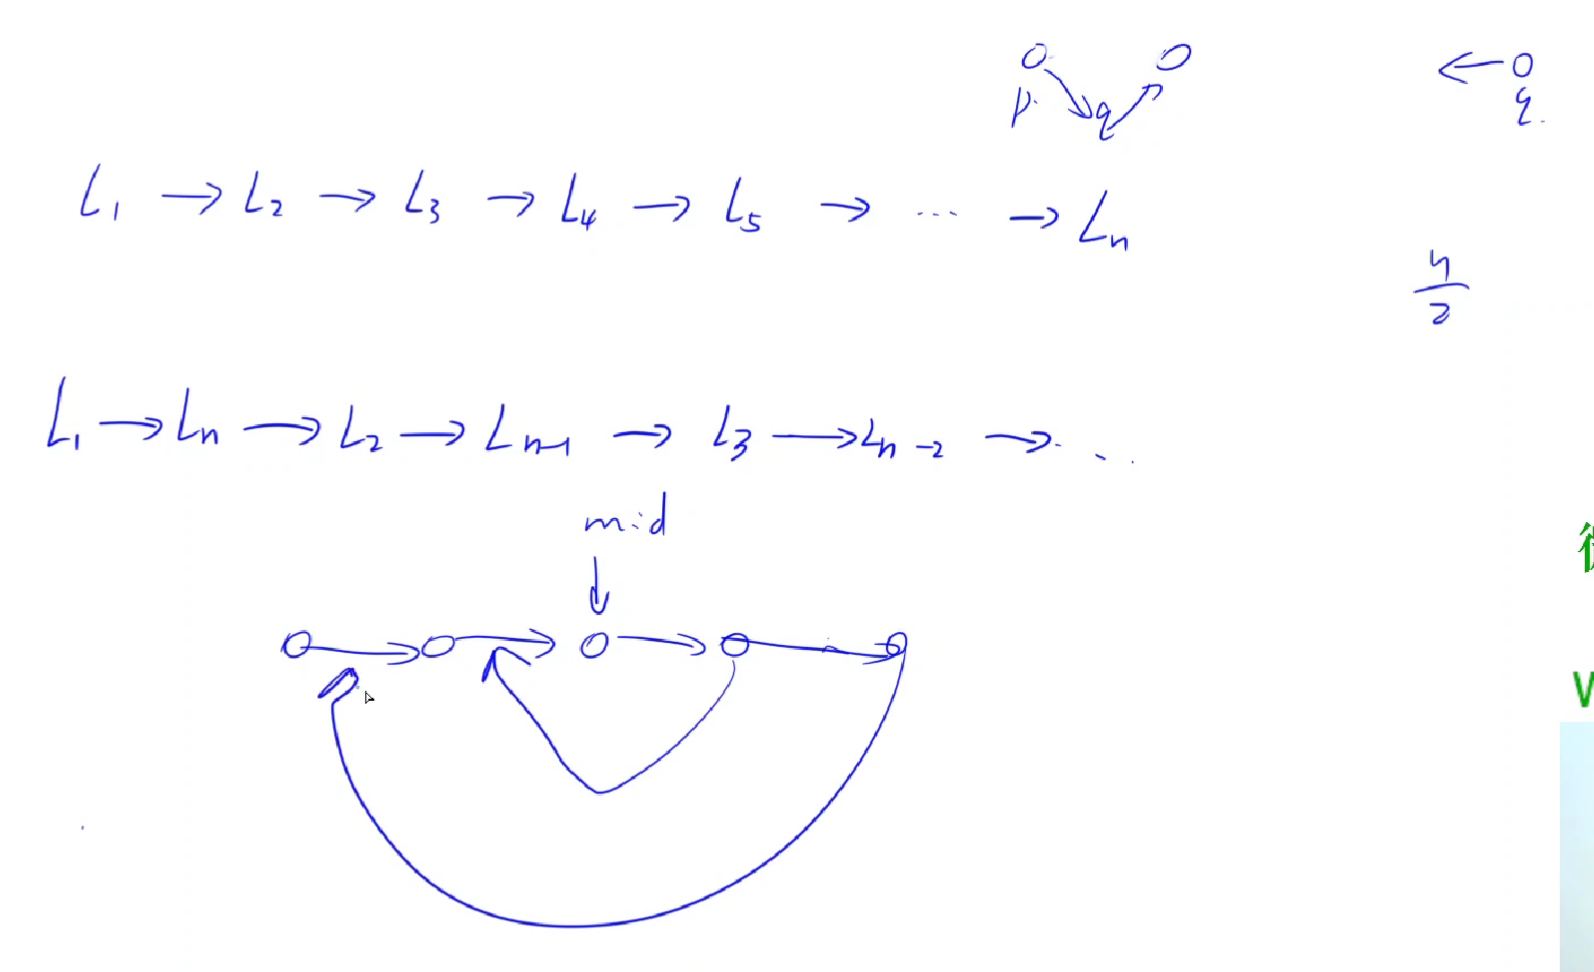 p. q
q.
L₁ → L₂ → L₃ → L₄ → L₅ → ... → Lₙ
n/2
L₁ → Lₙ → L₂ → Lₙ₋₁ → L₃ → Lₙ₋₂ → ...
mid